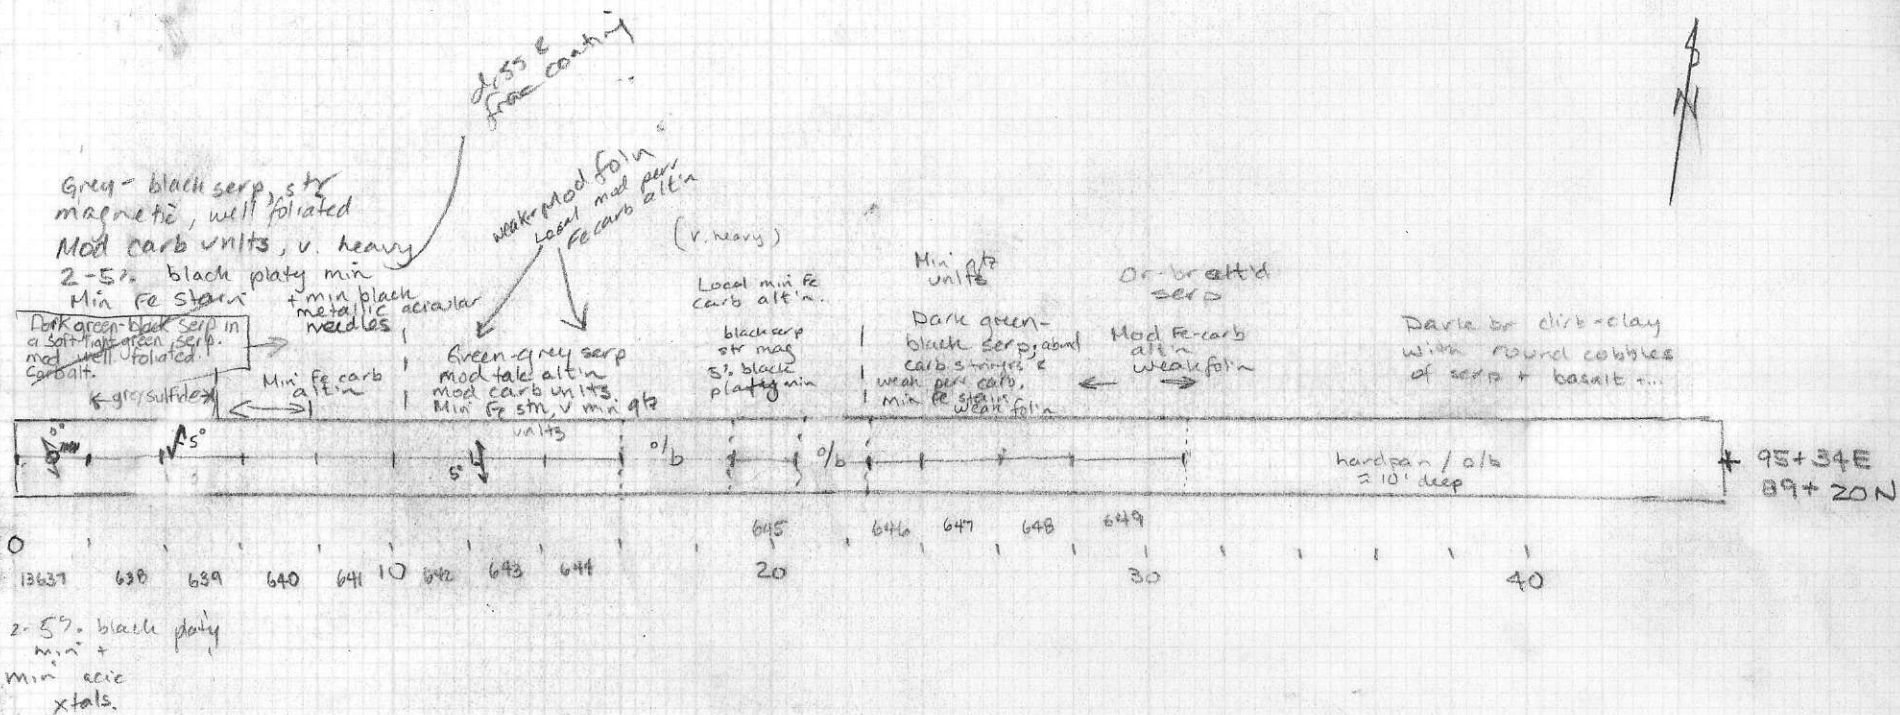 diss &
frac coating
N
Grey-black serp, str
magnetic, well foliated
Mod carb vnlts, v. heavy
2-5% black platy min
Min Fe stain
+ min black
metallic acicular
needles
weak-Mod foln
Local mod perv
Fe carb alt'n
(v. heavy)
Dark green-black serp in
a soft light green serp.
mod well foliated.
carb alt.
grey sulfide
Min Fe carb
alt'n
Green-grey serp
mod talc alt'n
mod carb vnlts.
Min Fe stn, v min qtz
vnlts
Local min Fe
carb alt'n.
black serp
str mag
5% black
platy min
Min qtz
vnlts
Dark green-
black serp, abund
carb stringrs &
weak perv carb,
min Fe stain
weak fol'n
Or-br alt'd
serp
Mod Fe-carb
alt'n
weak fol'n
Dark br dirt-clay
with round cobbles
of serp + basalt +...
5°
5°
o/b
o/b
hardpan / o/b
≈ 10' deep
95+34E
89+20N
645 646 647 648 649
0 10 20 30 40
13637 638 639 640 641 642 643 644
2-5% black platy
min +
min acic
xtals.